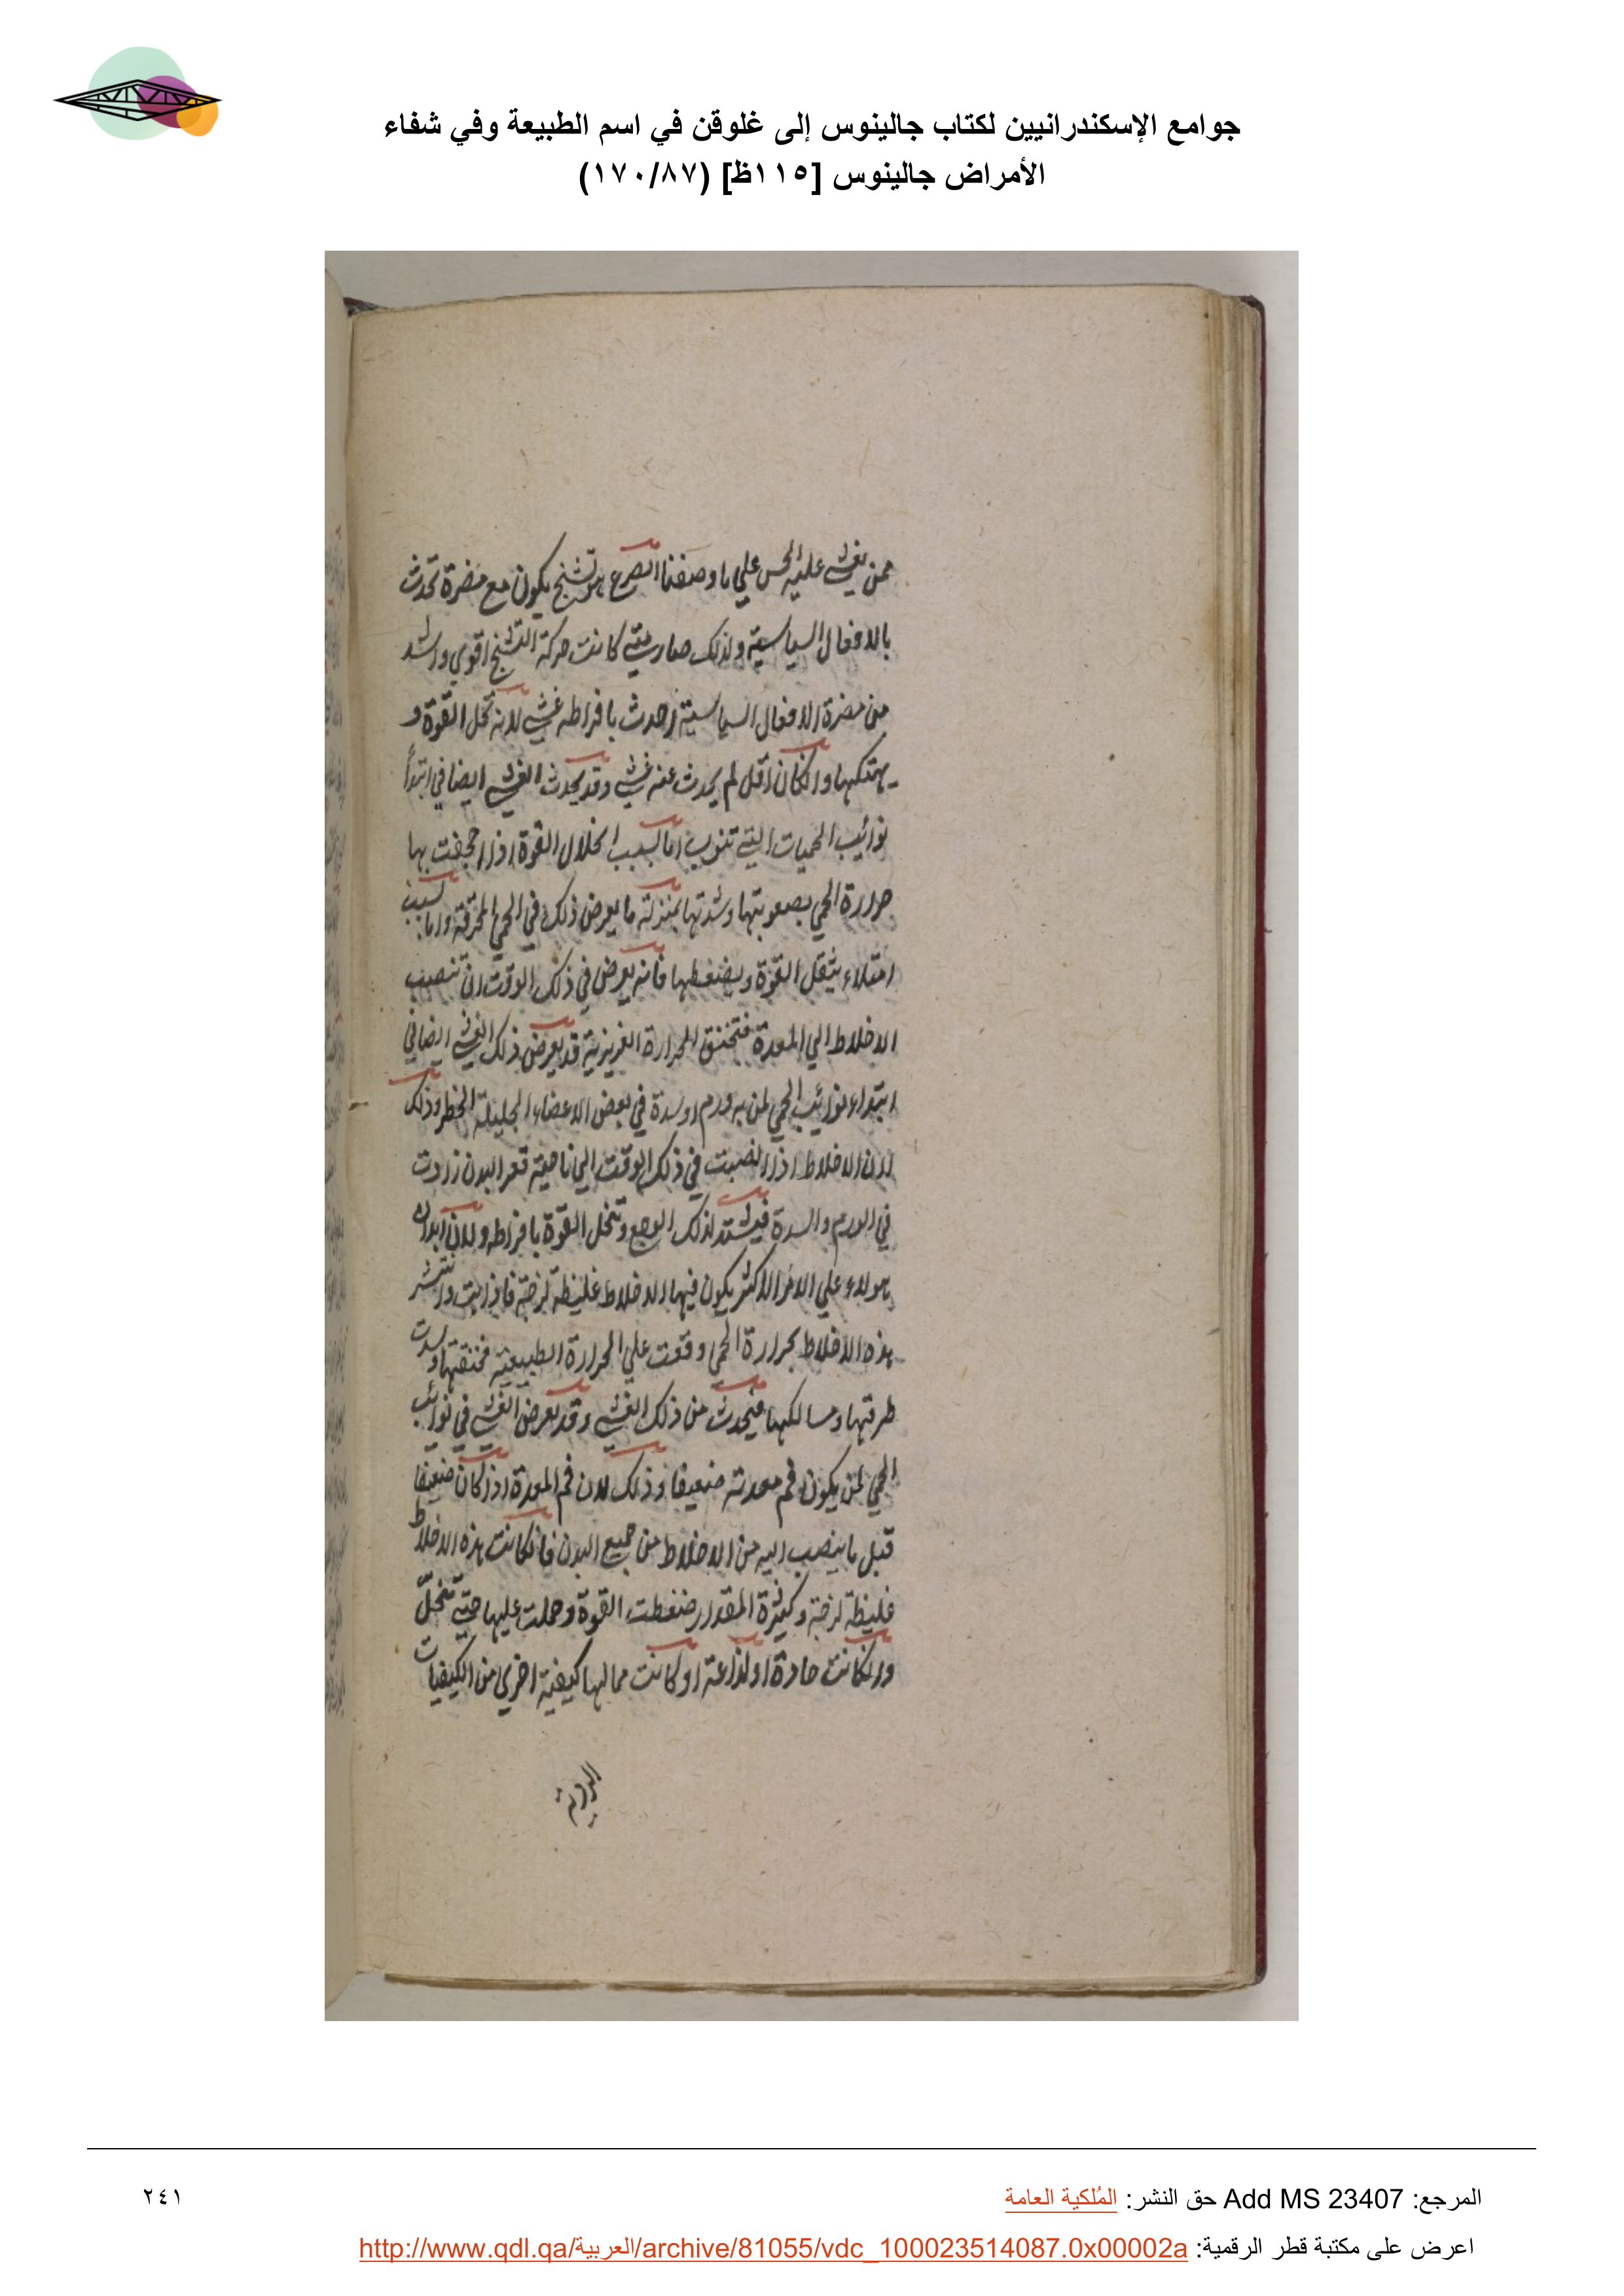 جوامع الإسكندرانيين لكتاب جالينوس إلى غلوقن في اسم الطبيعة وفي شفاء
الأمراض جالينوس [١١٥ظ] (١٧٠/٨٧)
ممن يغشي عليه الحس علي ما وصفنا الصرع هو تشنج يكون مع مضرة تحدث
بالافعال السياسية ولذلك صار متي كانت حركة التشنج اقوي واشد
من مضرة الافعال السياسية احدث بافراطه غشي لانه يحل القوة و
يهتكها وانكان اقل لم يحدث عنه غشي وقد يحدث الغشي ايضا في ابتدأ
نوائيب الحميات التي تنوب اما لسبب انحلال القوة اذا اجحفت بها
حرارة الحمي بصعوبتها وشدتها بمنزلة ما يعرض ذلك في الحمي المحرقة واما بسبب
امتلاء يثقل القوة ويضغطها فانه يعرض في ذلك الوقت ان تنصب
الاخلاط الي المعدة فتختنق الحرارة الغريزية قد يعرض ذلك الغشي ايضا في
ابتداء نوائيب الحمي لمن به ورم او سدة في بعض الاعضاء الجليلة الخطر وذلك
لان الاخلاط اذا انصبت في ذلك الوقت الي ناحية قعر البدن زادت
في الورم والسدة فيشتد لذلك الوجع وتنحل القوة بافراط ولان ابدان
هولاء علي الامر الاكثر يكون فيها الاخلاط غليظة لزجة فاذا ذابت وانتشر
هذه الاخلاط بحرارة الحمي وقعت علي الحرارة الطبيعية فخنقتها وسدت
طرقها ومسالكها فيحدث من ذلك الغشي وقد يعرض الغشي في نوائب
الحمي لمن يكون فم معدته ضعيفا وذلك لان فم المعدة اذا كان ضعيفا
قبل ما ينصب اليه من الاخلاط من جميع البدن فانكانت هذه الاخلاط
غليظة لزجة وكثيرة المقدار ضغطت القوة وحملت عليها حتي تنحل
وانكانت حادة او لذاعة او كانت مما لها كيفية اخري من الكيفيات
الردية
المرجع: Add MS 23407 حق النشر: المُلكية العامة
٢٤١
اعرض على مكتبة قطر الرقمية: http://www.qdl.qa/العربية/archive/81055/vdc_100023514087.0x00002a